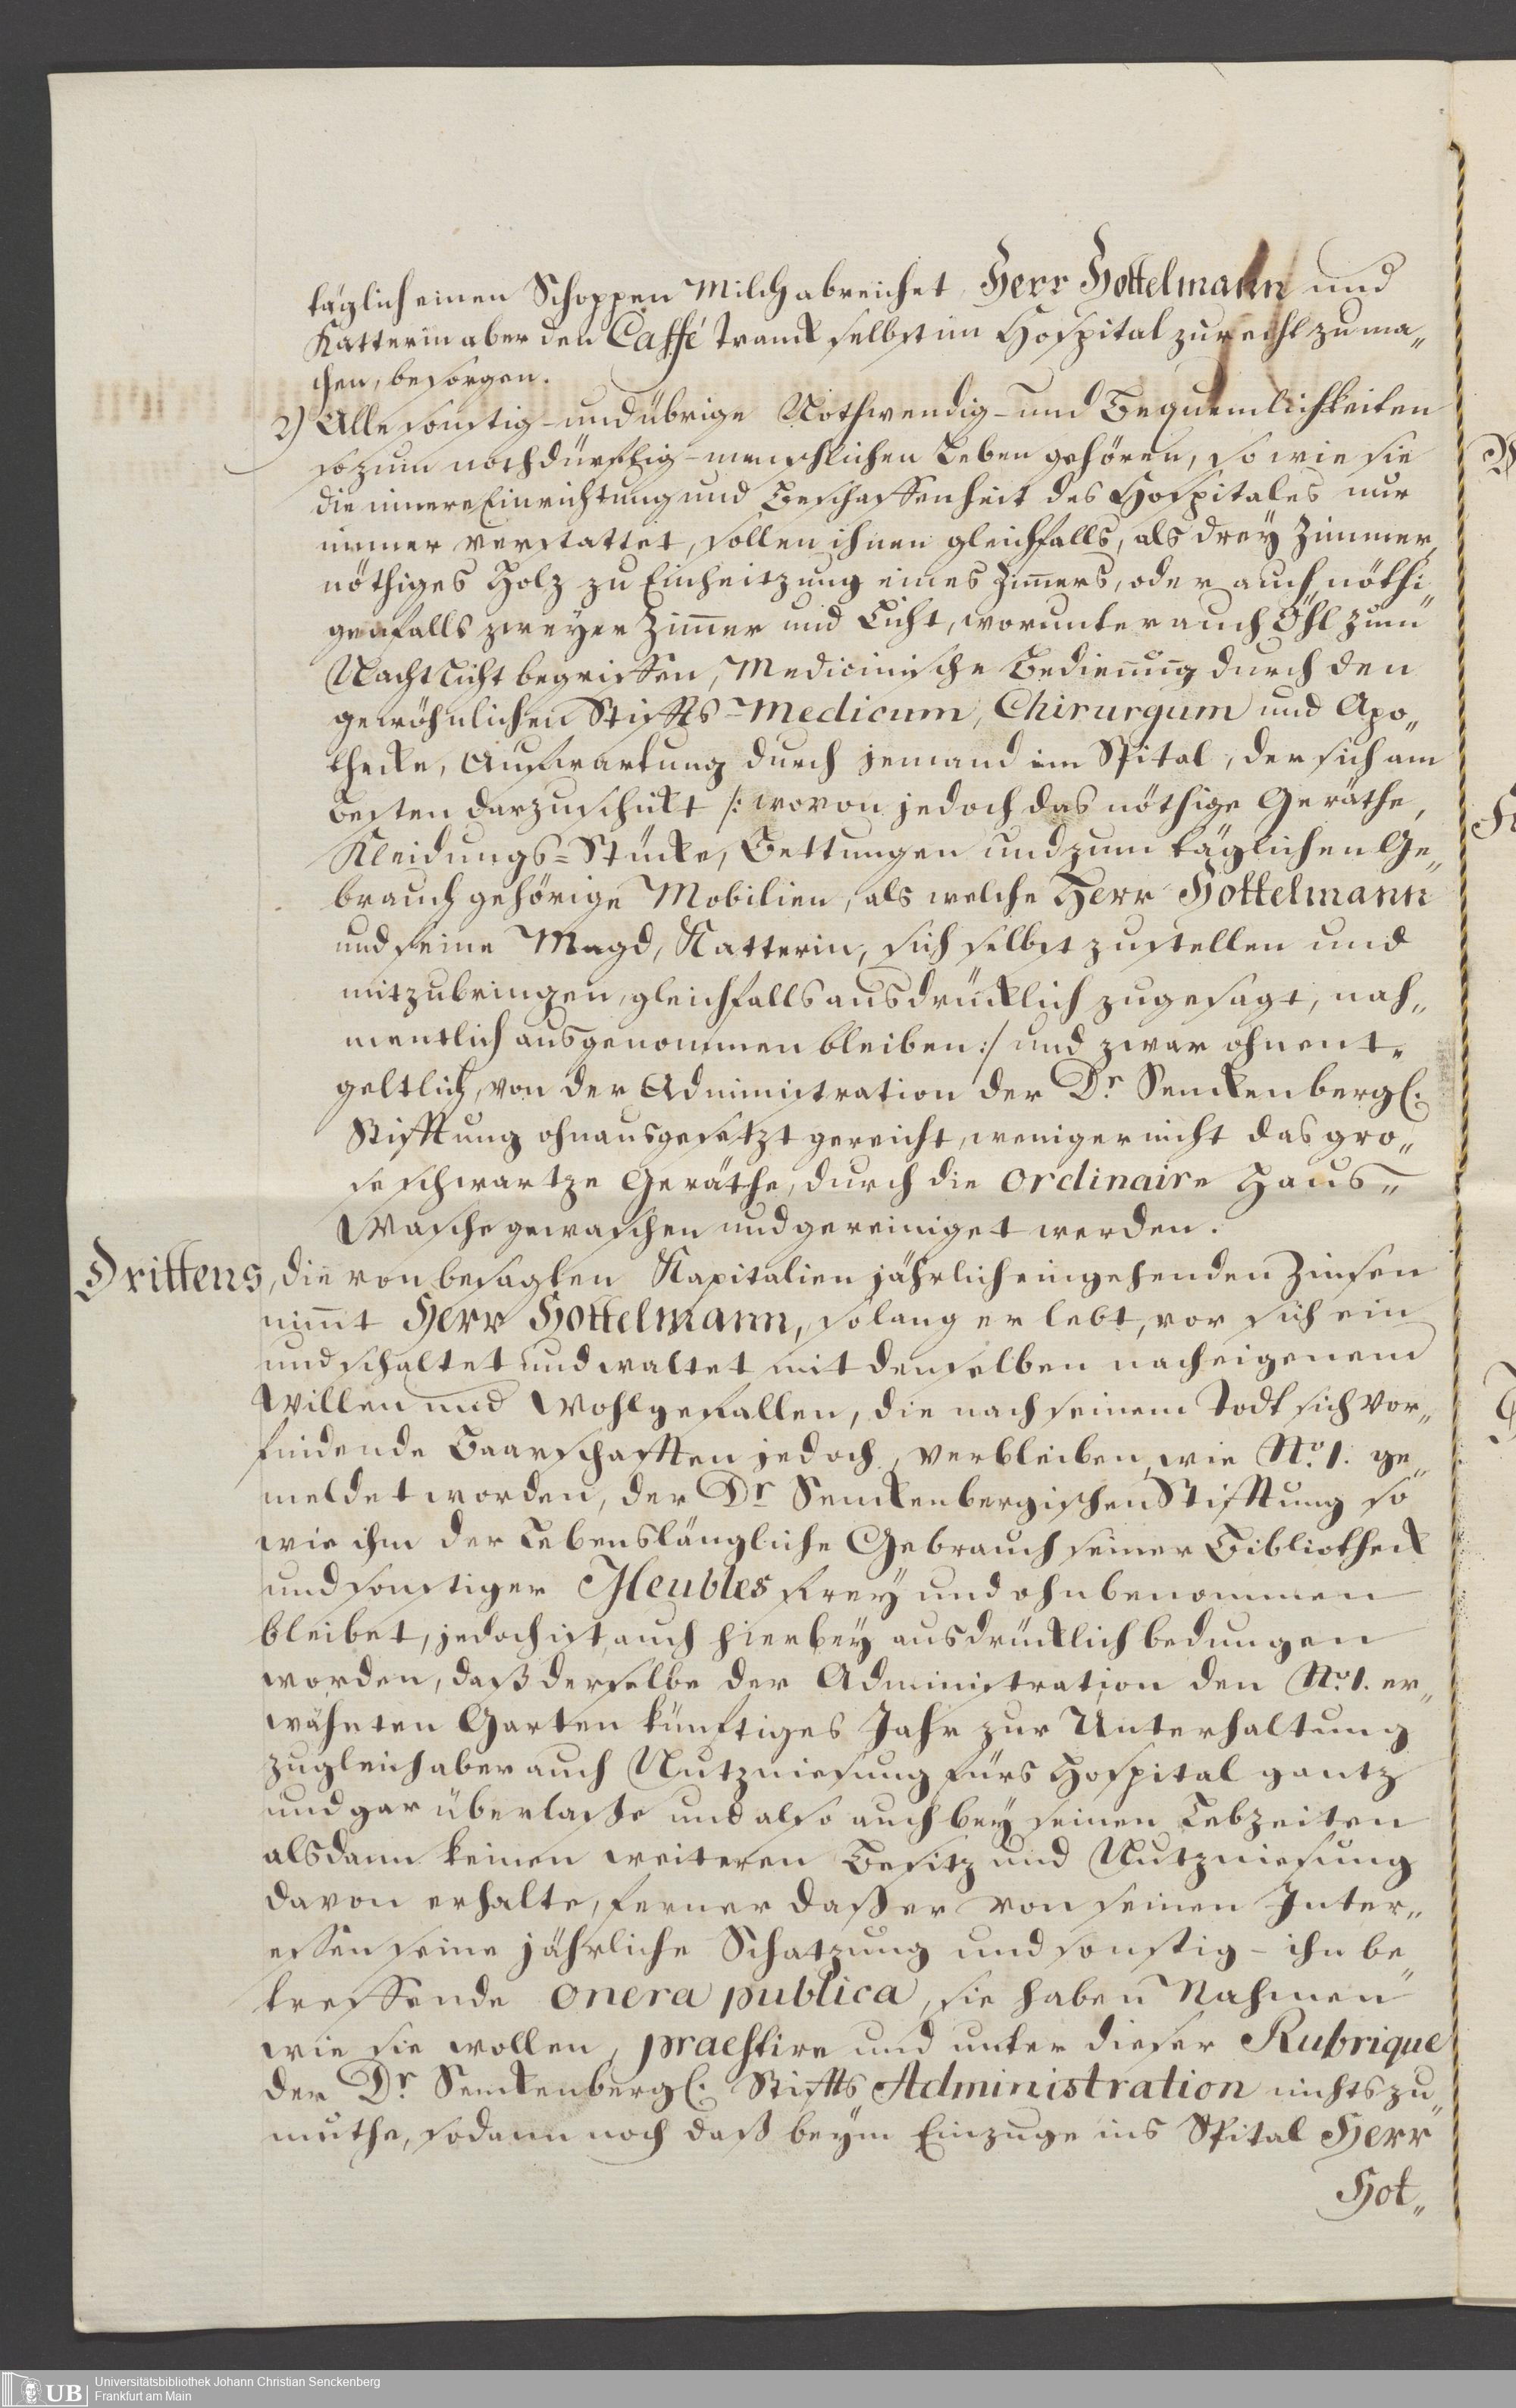 täglich einen Schoppen Milch abreichet Herr Hottelmann und
Katterin aber den Caffé Tranck selbst im Hospital zurecht zu ma„
chen, besorgen.
2) Alle sonstig- und übrige Nothwendig- und Bequemlichkeiten
so zum nothdürftig-menschlichen Leben gehören, so wie sie
die innere Einrichtung und Beschaffenheit des Hospitales nur
immer verstattet, sollen ihnen gleichfalls, als drey Zimmer,
nöthiges Holz zu Einheitzung eines Zim̅ers, oder auch nöthi„
genfalls zweyer Zim̅er und Licht, worunter auch Öhl zum
Nachtlicht begriffen, Medicinische Bedienung durch den
gewöhnlichen Stiffts-Medicum, Chirurgum und Apo„
thecke, Aufwartung durch jemand im Spital, der sich am
besten darzu schickt /: wovon jedoch das nöthige Geräthe,
Kleidungs=Stücke, Bettungen und zum täglichen Ge„
brauch gehörige Mobilien, als welche Herr Hottelmann
und seine Magd, Katterin, sich selbst zu stellen und
mitzubringen, gleichfalls ausdrücklich zugesagt, nah„
mentlich ausgenommen bleiben :/ und zwar ohnent„
geltlich, von der Administration der Dr. Senckenbergl.
Stifftung ohnausgesetzt gereicht, weniger nicht das gro„
se schwartze Geräthe, durch die ordinaire Haus„
Wasche gewaschen und gereiniget werden.
Drittens, die von besagten Kapitalien jährlich eingehenden Zinsen
nim̅t Herr Hottelmann, solang er lebt, vor sich ein
und schaltet und waltet mit denselben nach eigenem
Willen und Wohlgefallen, die nach seinem Todt sich vor„
findende Baarschafften jedoch, verbleiben, wie No. 1. ge„
meldet worden, der Dr. Senckenbergischen Stifftung so
wie ihm der Lebenslängliche Gebrauch seiner Bibliotheck
und sonstiger Meubles frey und ohnbenommen
bleibet, jedoch ist auch hierbey ausdrücklich bedungen
worden, daß derselbe der Administration den No. 1. er„
wähnten Garten künftiges Jahr zur Unterhaltung
zugleich aber auch Nutzniesung fürs Hospital gantz
und gar überlasse und also auch bey seinen Lebzeiten
alsdann keinen weiteren Besitz und Nutzniesung
davon erhalte, ferner daß er von seinen Inter„
essen seine jährliche Schatzung und sonstig- ihn be„
treffende onera publica, sie haben Nahmen
wie sie wollen, praestire und unter dieser Rubrique
der Dr. Senckenbergl. Stiffts„Administration nichts zu„
muthe, sodann noch daß beym Einzuge ins Spital Herr
Hot„
UB
Universitätsbibliothek Johann Christian Senckenberg
Frankfurt am Main